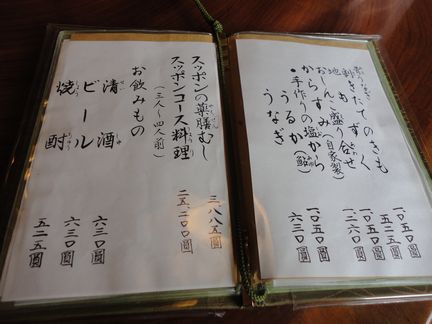 割きたてのきも
一〇五〇圓
地もずく
五二五圓
おしんこ盛り合せ
一〇五〇圓
からすみ(自家製)
一二六〇圓
・手作りの塩から
うるか(鮎)
一〇五〇圓
うなぎ
六三〇圓
スッポンの薬膳むし
三八八五圓
スッポンコース料理
(三人〜四人前)
二五、二〇〇圓
お飲みもの
清酒
六三〇圓
ビール
六三〇圓
焼酎
五二五圓